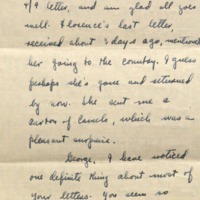 4/9 letter, and am glad all goes
well. Florence's last letter
received about 3 days ago, mentioned
her going to the country. I guess
perhaps she's gone and returned
by now. She sent me a
of Camels, which was a
pleasant surprise.
George, I have noticed
one definite thing about most of
your letters. You seem so